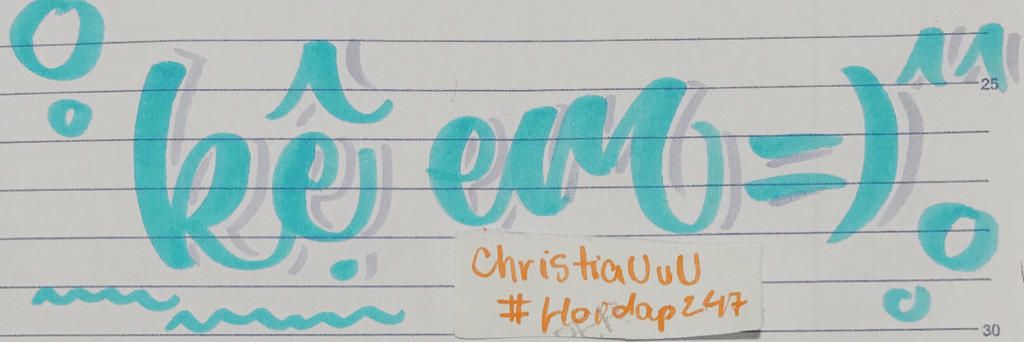 kệ em =)
25
ChristiaUuU
#Hoidap247
30